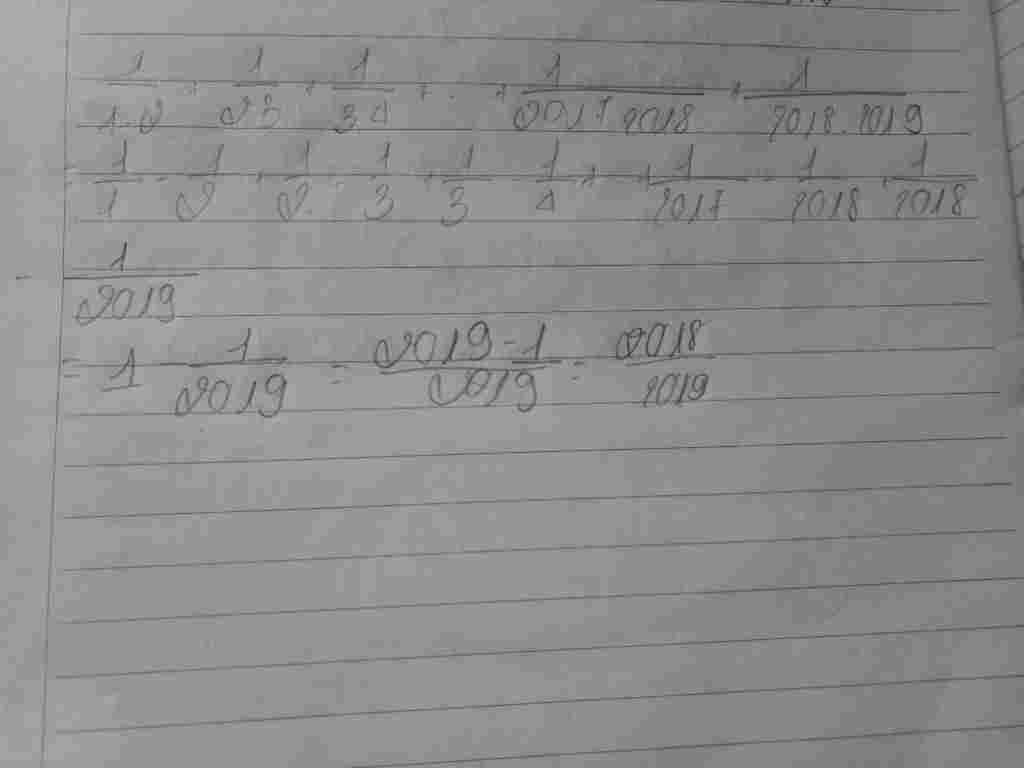 1/1.2 + 1/2.3 + 1/3.4 + ... + 1/2017.2018 + 1/2018.2019
= 1/1 - 1/2 + 1/2 - 1/3 + 1/3 - 1/4 + ... + 1/2017 - 1/2018 + 1/2018
- 1/2019
= 1 - 1/2019 = 2019-1/2019 = 2018/2019